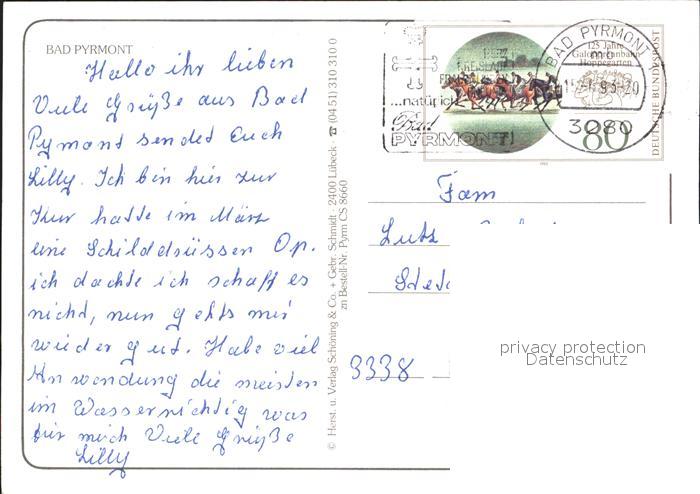 BAD PYRMONT
Hallo ihr lieben
Viele Grüße aus Bad
Pyrmont sendet Euch
Lilly. Ich bin hier zur
Kur hatte im März
eine Schilddrüssen Op.
ich dachte ich schaff es
nicht, nun gehts mir
wieder gut. Habe viel
Anwendung die meisten
im Wasser richtig was
für mich Viele Grüße
Lilly
© Herst. u. Verlag Schöning & Co. + Gebr. Schmidt · 2400 Lübeck · ☎ (04 51) 310 310 0
zn Bestell-Nr. Pyrm CS 8660
...natürlich
Bad
PYRMONT
BAD PYRMONT
mo
3080
125 Jahre
Galopprennbahn
Hoppegarten
80
DEUTSCHE BUNDESPOST
Fam
Lutz
3338
privacy protection
Datenschutz